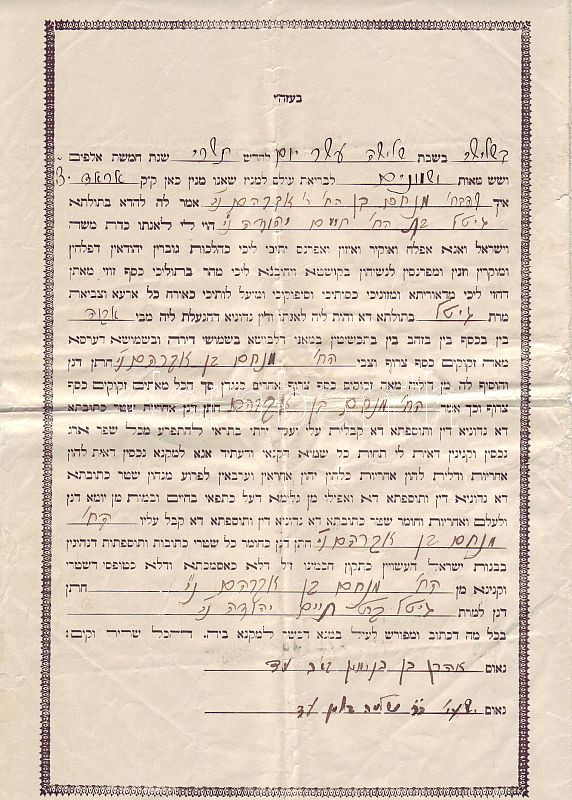 בעזה"י
בשלישי בשבת שלשה עשר יום לחדש תשרי שנת חמשת אלפים
ושש מאות ושמונים לבריאת עולם למנין שאנו מנין כאן ק"ק
איך מנחם בן הח' ר' אברהם ני' אמר לה להדא בתולתא
גיטל בת הח' חיים יהודה ני' הוי לי לאנתו כדת משה
וישראל ואנא אפלח ואוקיר ואיזון ואפרנס יתיכי ליכי כהלכות גוברין יהודאין דפלחין
ומוקרין וזנין ומפרנסין לנשיהון בקושטא ויהיבנא ליכי מהר בתוליכי כסף זוזי מאתן
דחזי ליכי מדאוריתא ומזוניכי כסותיכי וסיפוקיכי ומיעל לותיכי כאורח כל ארעא וצביאת
מרת גיטל בתולתא דא והות ליה לאנתו ודין נדוניא דהנעלת ליה מבי אבוה
בין בכסף בין בזהב בין בתכשיטין במאני דלבושא בשמושי דירה ובשמושא דערסא
מאה זקוקים כסף צרוף וצבי הח' מנחם בן אברהם ני' חתן דנן
והוסיף לה מן דיליה מאה זקוקים כסף צרוף אחרים כנגדן סך הכל מאתים זקוקים כסף
צרוף וכך אמר הח' מנחם בן אברהם חתן דנן אחריות שטר כתובתא
דא נדוניא דין ותוספתא דא קבלית עלי ועל ירתי בתראי להתפרע מכל שפר ארג
נכסין וקנינין דאית לי תחות כל שמיא דקנאי ודעתיד אנא למקנא נכסין דאית להון
אחריות ודלית להון אחריות כלהון יהון אחראין וערבאין לפרוע מנהון שטר כתובתא
דא נדוניא דין ותוספתא דא ואפילו מן גלימא דעל כתפאי בחיים ובמות מן יומא דנן
ולעלם ואחריות וחומר שטר כתובתא דא נדוניא דין ותוספתא דא קבל עליו הח'
מנחם בן אברהם ני' חתן דנן כחומר כל שטרי כתובות ותוספתות דנהוגין
בבנות ישראל העשויין כתקון חכמינו ז"ל דלא כאסמכתא ודלא כטופסי דשטרי
וקנינא מן הח' מנחם בן אברהם ני' חתן
דנן למרת גיטל בת חיים יהודה ני'
בכל מה דכתוב ומפורש לעיל במנא דכשר למקנא ביה. והכל שריר וקים:
נאום אהרן בן בנימין עד
נאום עד